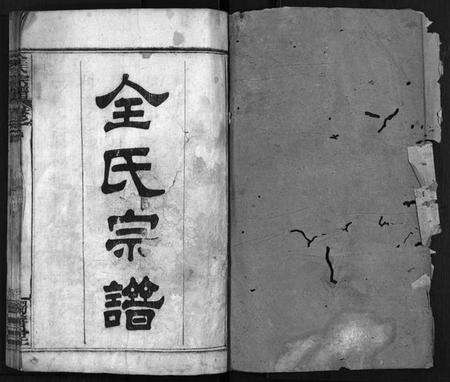 全氏宗譜